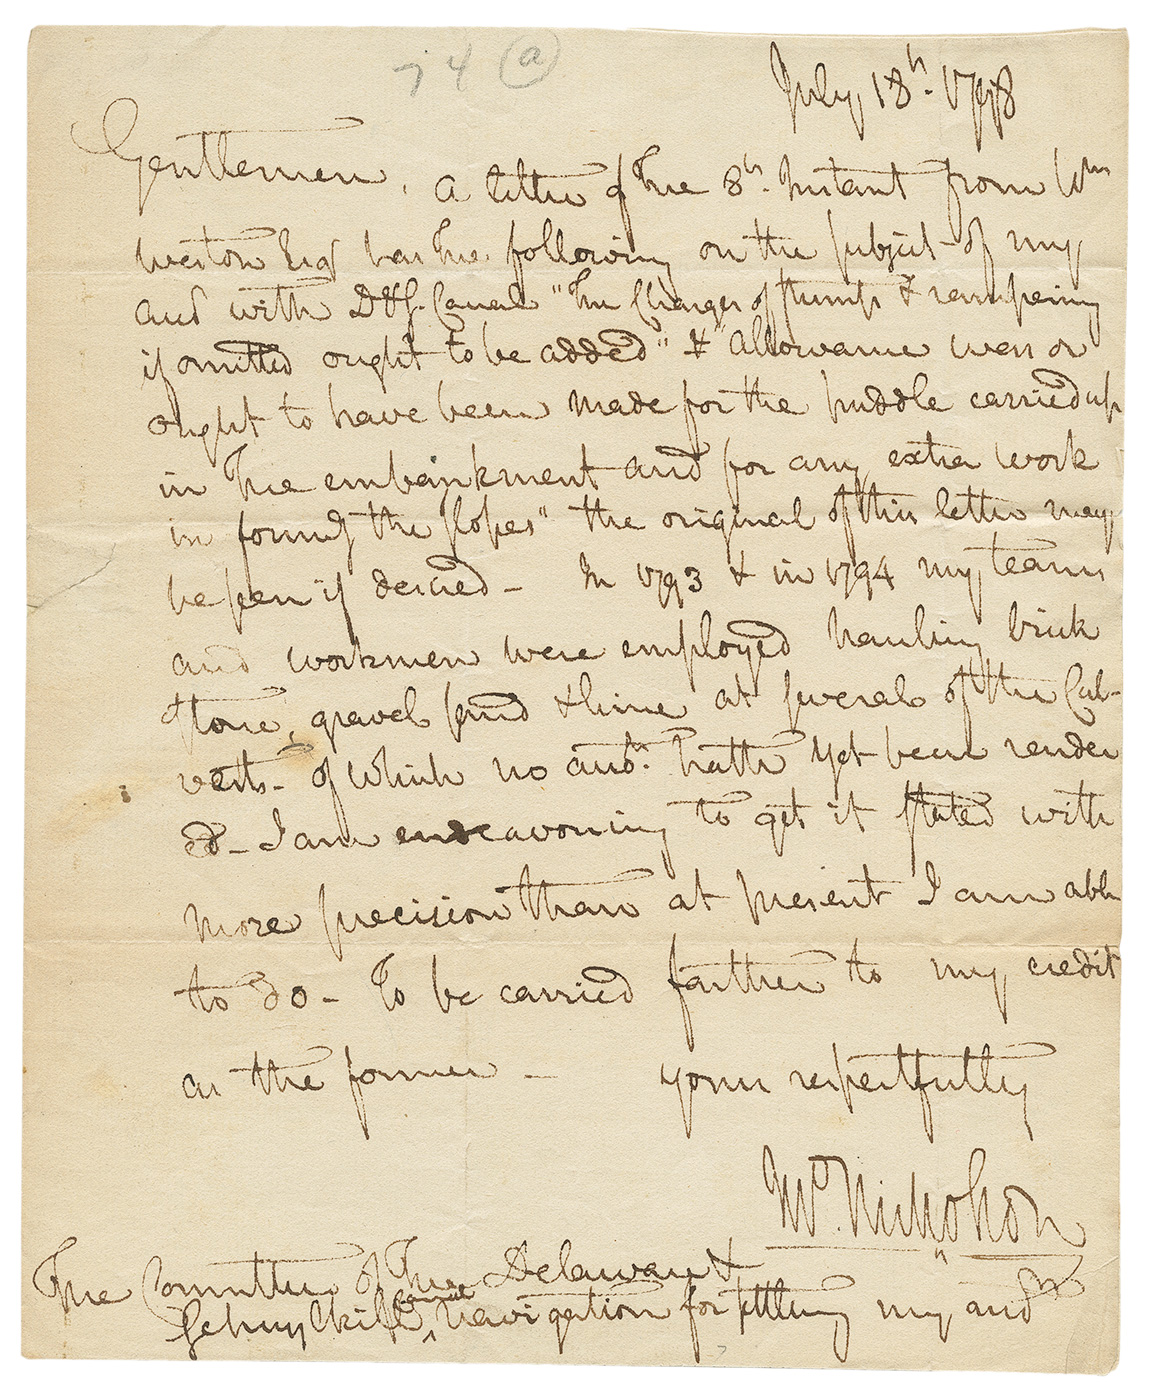 74 (a)
July, 18h. 1798
Gentlemen, a letter of the 8h. Instant from Wm
Weston Esq has the following on the subject of my
and with D&S. Canal "The Charges of stumps &
if omitted ought to be added" & "allowance was or
ought to have been made for the puddle carried up
in the embankment and for any extra work
in formg the slopes" the original of this letter may
be seen if desired - In 1793 & in 1794 my teams
and workmen were employed hauling brick
stone, gravel sand & lime at several of the Cul-
verts - of which no hath yet been render
ed - I am endeavouring to get it stated with
more precision than at present I am able
to do - To be carried farther to my credit
as the former - yours respectfully
Jno. Nicholson
The Committee of the Delaware &
Schuylkill Canal Navigation for settling my and